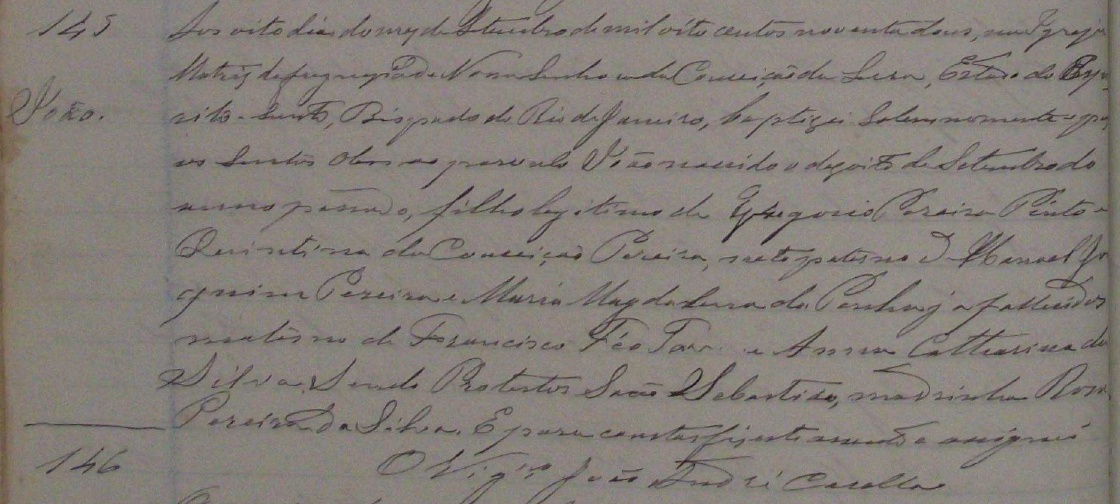 145
Aos oito dias do mez de Setembro de mil oito centos noventa e dous, na Igreja
Matriz da freguezia de Nossa Senhora da Conceição da Serra, Estado do Espi-
João.
rito-Santo, Bispado do Rio de Janeiro, baptizei solemnemente e puz
os Santos Oleos ao parvulo João nascido a dezoito de Setembro do
anno passado, filho legitimo de Gregorio Pereira Pinto e
Quintina da Conceição Pereira, neto paterno de Manoel Joa
quim Pereira e Maria Magdalena da Penha já fallecidos
materno de Francisco e Anna Catharina da
Silva. Sendo Protector São Sebastião, madrinha Rosa
Pereira da Silva. E para constar fiz este assento e assignei
146
O Vigr.º João André Casella